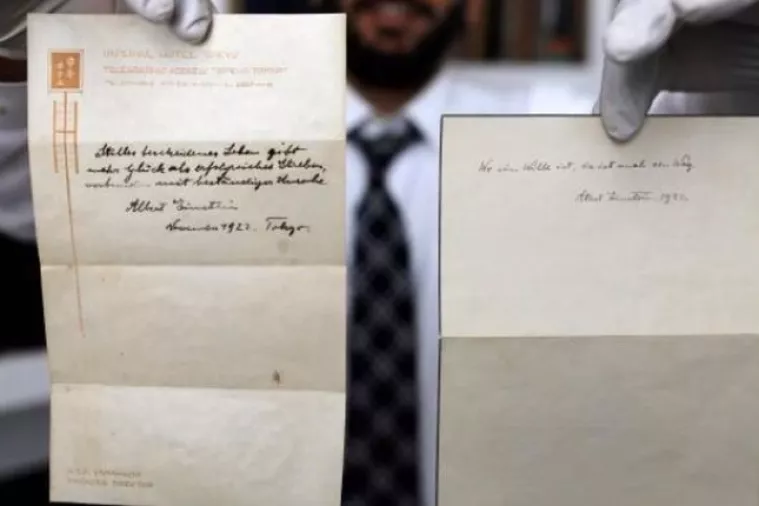 IMPERIAL HOTEL TOKYO
Stilles bescheidenes Leben gibt
mehr Glück als erfolgreiches Streben,
verbunden mit beständiger Unruhe
Albert Einstein
November 1922. Tokyo.
MANAGING DIRECTOR
Wo ein Wille ist, da ist auch ein Weg.
Albert Einstein 1922.